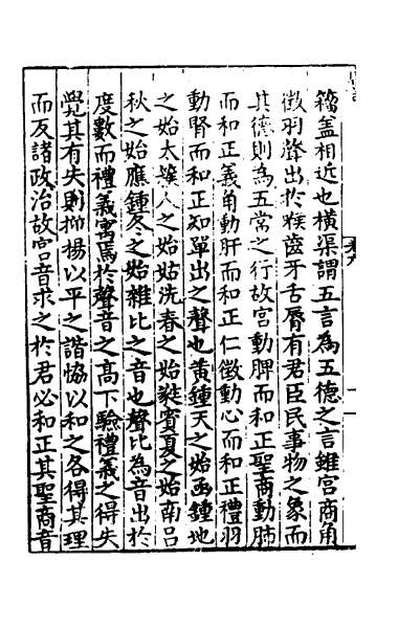 籥盖相近也橫渠謂五言為五德之言雖宮商角
徵羽聲出於喉齒牙舌脣有君臣民事物之象而
其德則為五常之行故宮動脾而和正聖商動肺
而和正義角動肝而和正仁徵動心而和正禮羽
動腎而和正知單出之聲也黃鍾天之始函鍾地
之始太蔟人之始姑洗春之始蕤賓夏之始南呂
秋之始應鍾冬之始雜比之音也聲比為音出於
度數而禮義寓焉於聲音之髙下驗禮義之得失
覺其有失則抑揚以平之諧恊以和之各得其理
而反諸政治故宮音求之於君必和正其聖商音